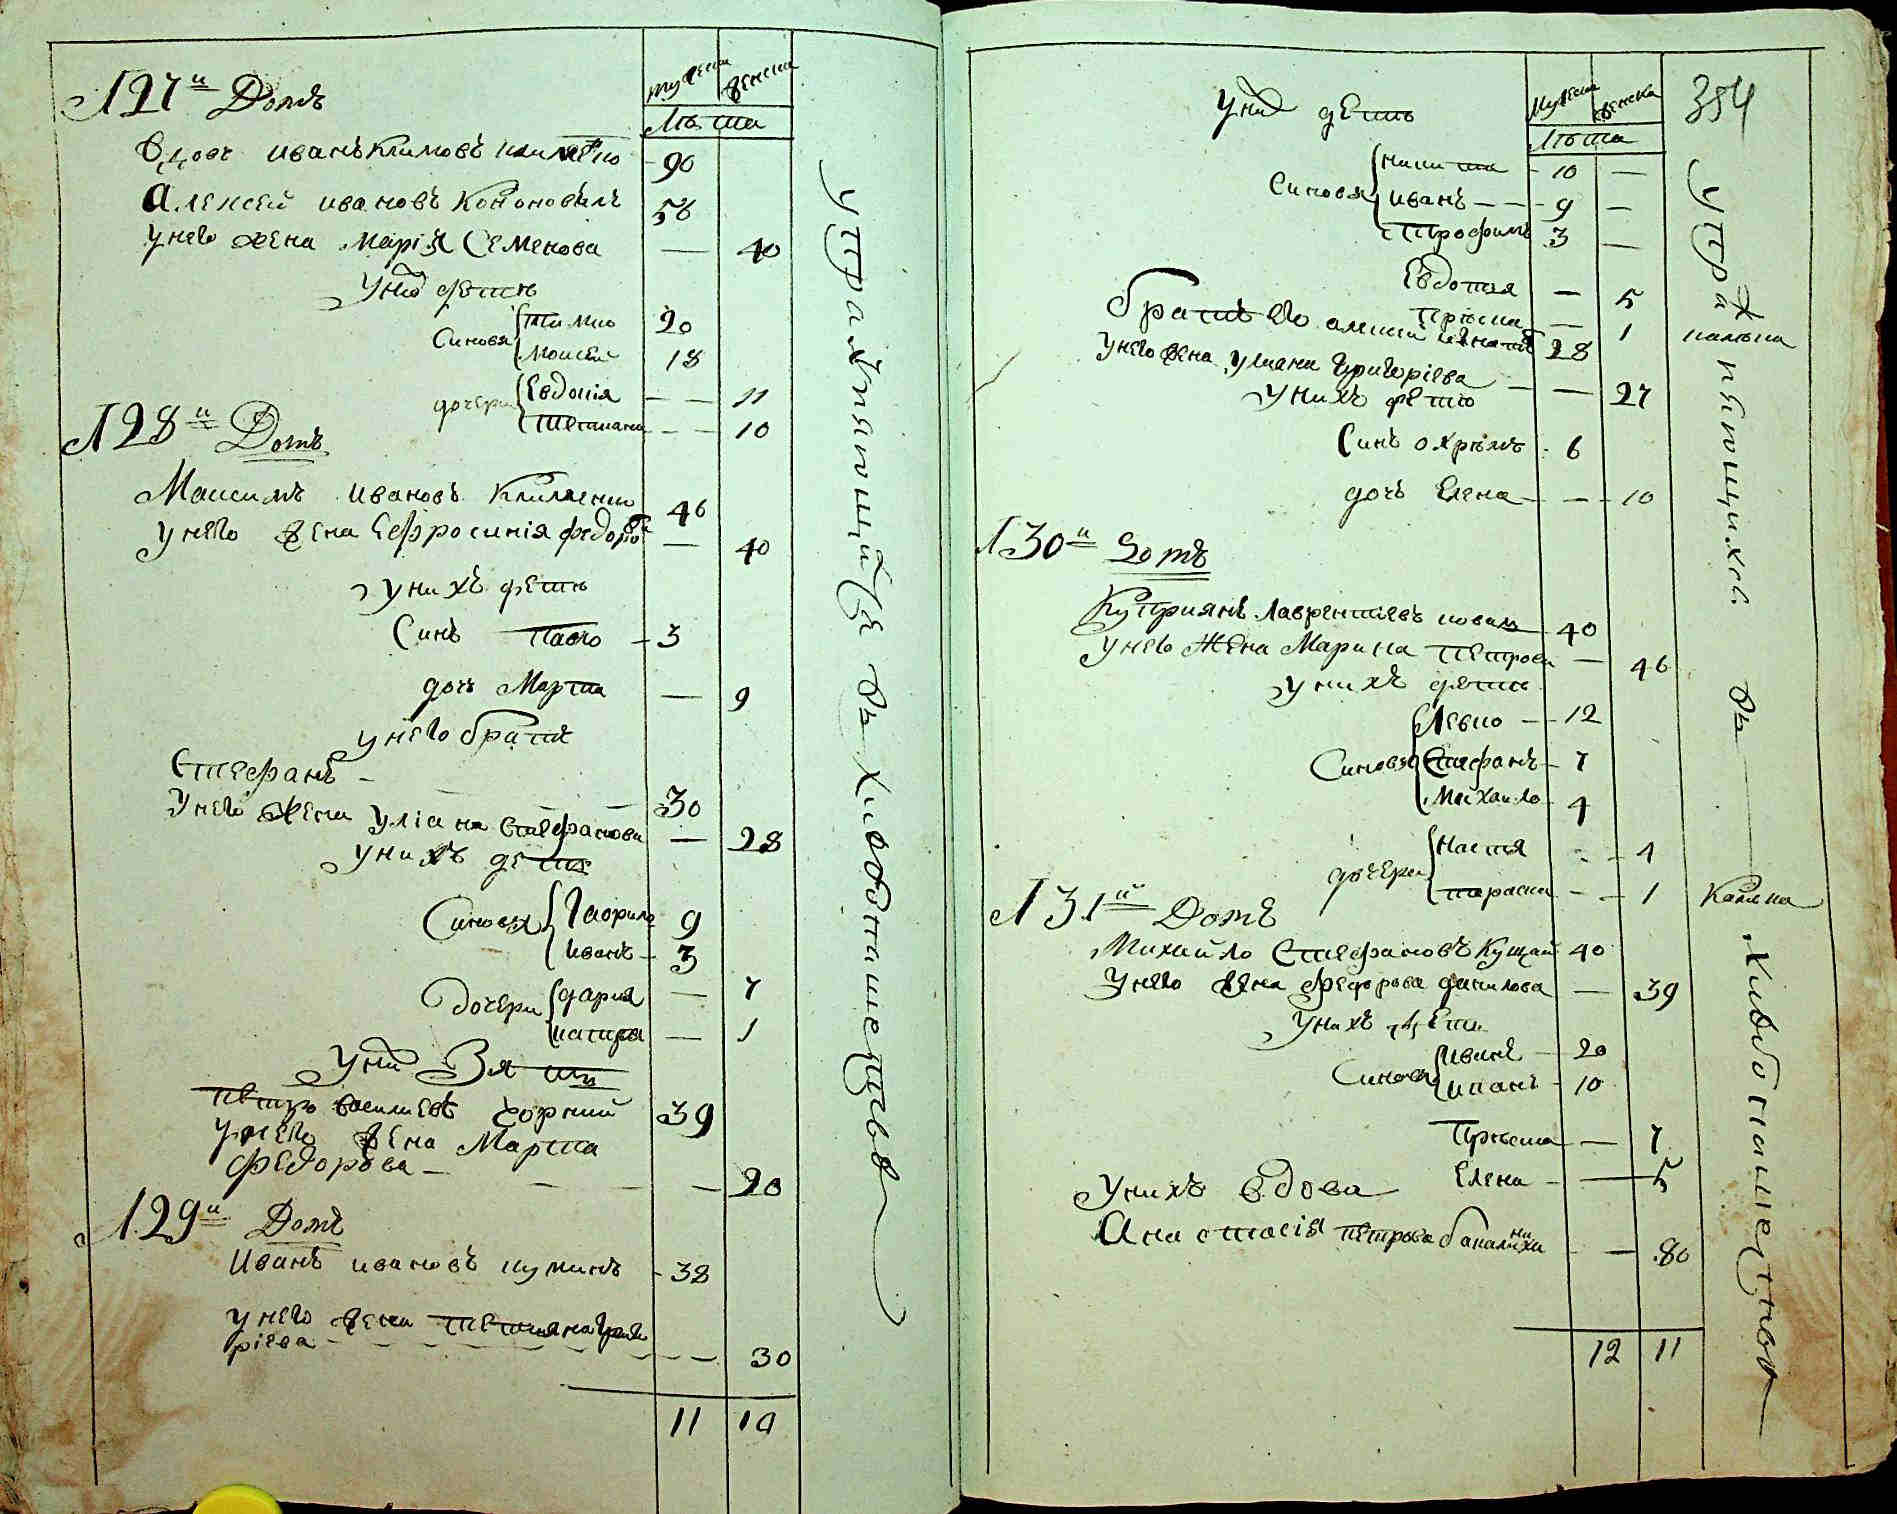 127й Домъ
мужеска женска
Лѣта
Вдовъ Иванъ Климовъ 90
Алексей Ивановъ Кононовъ 58
У него жена Марія Семенова — 40
У них дети
Синовя Тимко 20
Моисей 18
дочери Евдокія — 11
Тетиана — 10
128й Домъ
Максимъ Ивановъ Клименко 46
У него жена Ефросинія Федорова — 40
у нихъ дети
Синъ Павло 3
дочъ Марта — 9
у него братъ
Стефанъ — 30
У него жена Уліана Стефанова — 28
у нихъ дети
Синовя Гаврило 9
Иванъ 3
Дочери дария — 7
— 1
У них Зять
Петро Василиевъ Чорний 39
У него жена Марта
Федорова — 20
129й Домъ
Иванъ Ивановъ 38
у него жена Тетияна Григо
ріева — 30
11 10
упражняющийся въ хлебопашецтве
У них дети
мужеска женска
Лѣта
354
Синовя Никита 10 —
Иванъ — 9 —
Трофимъ 3 —
Евдотия — 5
Приська — 1
калѣка
Братъ его 28
У него жена Улияна Григоріева — 27
У нихъ дети
Синъ Охрѣмъ 6
дочъ Елена — 10
130й Домъ
Куприянъ Лаврентіевъ коваль 40
У него жена Марина Петрова — 46
у нихъ дети
Синовя Левко — 12
Стефанъ — 7
Михайло 4
дочери Настя — 4
Параска — 1
Калѣка
131й Домъ
Михайло Стефановъ Куцай 40
У него жена Федорова данилова — 39
У нихъ дети
Синовя Иванъ — 20
Иванъ — 10
Приська — 7
Елена — 5
У нихъ вдова
Анастасія Петрова — 80
12 11
упражняющихся въ хлебопашецтве